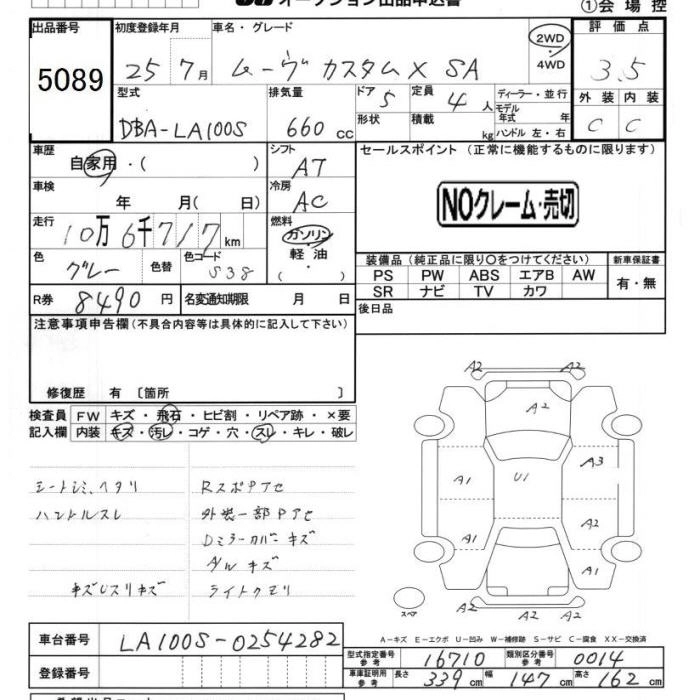 オークション出品申込書
①会場控
出品番号 初度登録年月 車名・グレード 評価点
5089 25 7月 ムーヴ カスタム X SA 2WD・4WD 3.5
型式 排気量 ドア 定員 ディーラー・並行 外装 内装
DBA-LA100S 660cc 5 4人 モデル年式 年 C C
形状 積載 kg ハンドル 左・右
車歴 シフト セールスポイント(正常に機能するものに限ります)
自家用・( ) AT
車検 冷房
年 月( 日) AC NOクレーム・売切
走行 燃料
10万6千717km ガソリン・軽油・( )
色 色替 色コード 装備品(純正品に限り○をつけてください) 新車保証書
グレー S38 PS PW ABS エアB AW 有・無
SR ナビ TV カワ
R券 8490円 名変通知期限 月 日 後日品
注意事項申告欄(不具合内容等は具体的に記入して下さい)
修復歴 有〔箇所 〕
検査員 FW キズ・飛石・ヒビ割・リペア跡・×要
記入欄 内装 キズ・汚レ・コゲ・穴・スレ・キレ・破レ
A2 A2
A2
A3
A1 U1
A2
A1 A1
A2 A2 A2
スペア
シートシミ、ヘタリ RスポPアセ
ハンドルスレ 外装一部Pアセ
Dミラーカバーキズ
A/Wキズ
キズUスリキズ ライトクモリ
A-キズ E-エクボ U-凹み W-補修跡 S-サビ C-腐食 XX-交換済
車台番号 LA100S-0254282
型式指定番号 参考 16710 類別区分番号 参考 0014
登録番号 車庫証明用 参考 長さ 339cm 幅 147cm 高さ 162cm